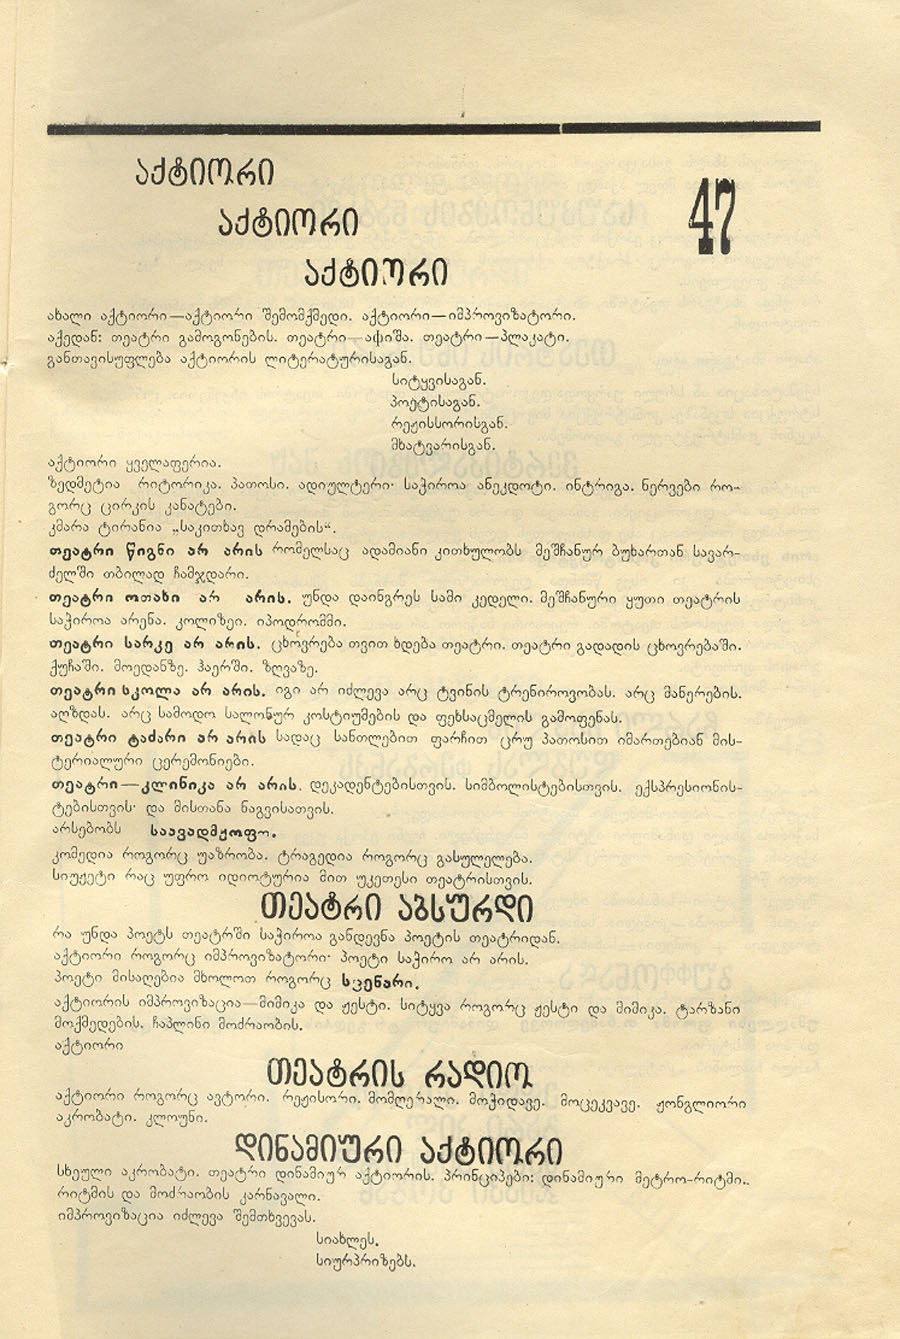 აქტიორი
47
აქტიორი
აქტიორი
ახალი აქტიორი—აქტიორი შემომქმედი. აქტიორი—იმპროვიზატორი.
აქედან: თეატრი გამოგონების. თეატრი—აფიშა. თეატრი—პლაკატი.
განთავისუფლება აქტიორის ლიტერატურისაგან.
სიტყვისაგან.
პოეტისაგან.
რეჟისსორისგან.
მხატვარისგან.
აქტიორი ყველაფერია.
ზედმეტია რიტორიკა. პათოსი. ადიულტერი· საჭიროა ანეკდოტი. ინტრიგა. ნერვები რო-
გორც ცირკის კანატები.
კმარა ტირანია „საკითხავ დრამების“.
თეატრი წიგნი არ არის რომელსაც ადამიანი კითხულობს მეშჩანურ ბუხართან სავარ-
ძელში თბილად ჩამჯდარი.
თეატრი ოთახი არ არის. უნდა დაინგრეს სამი კედელი. მეშჩანური ყუთი თეატრის
საჭიროა არენა. კოლიზეი. იპოდრომმი.
თეატრი სარკე არ არის. ცხოვრება თვით ხდება თეატრი. თეატრი გადადის ცხოვრებაში.
ქუჩაში. მოედანზე. ჰაერში. ზღვაზე.
თეატრი სკოლა არ არის. იგი არ იძლევა არც ტვინის ტრენიროვობას. არც მანერების.
აღზდას. არც სამოდო სალონურ კოსტიუმების და ფეხსაცმელის გამოფენას.
თეატრი ტაძარი არ არის სადაც სანთლებით ფარჩით ცრუ პათოსით იმართებიან მის-
ტერიალური ცერემონიები.
თეატრი—კლინიკა არ არის. დეკადენტებისთვის. სიმბოლისტებისთვის. ექსპრესიონის-
ტებისთვის· და მისთანა ნაგვისათვის.
არსებობს საავადმყოფო.
კომედია როგორც უაზრობა. ტრაგედია როგორც გასულელება.
სიუჟეტი რაც უფრო იდიოტურია მით უკეთესი თეატრისთვის.
თეატრი აბსურდი
რა უნდა პოეტს თეატრში საჭიროა განდევნა პოეტის თეატრიდან.
აქტიორი როგორც იმპროვიზატორი· პოეტი საჭირო არ არის.
პოეტი მისაღებია მხოლოთ როგორც სცენარი.
აქტიორის იმპროვიზაცია—მიმიკა და ჟესტი. სიტყვა როგორც ჟესტი და მიმიკა. ტარზანი
მოქმედების. ჩაპლინი მოძრაობის.
აქტიორი
თეატრის რადიო
აქტიორი როგორც ავტორი. რეჟისორი. მომღერალი. მოჭიდავე. მოცეკვავე. ჟონგლიორი
აკრობატი. კლოუნი.
დინამიური აქტიორი
სხეული აკრობატი. თეატრი დინამიურ აქტიორის. პრინციპები: დინამიური მეტრო-რიტმი..
რიტმის და მოძრაობის კარნავალი.
იმპროვიზაცია იძლევა შემთხვევას.
სიახლეს.
სიურპრიზებს.